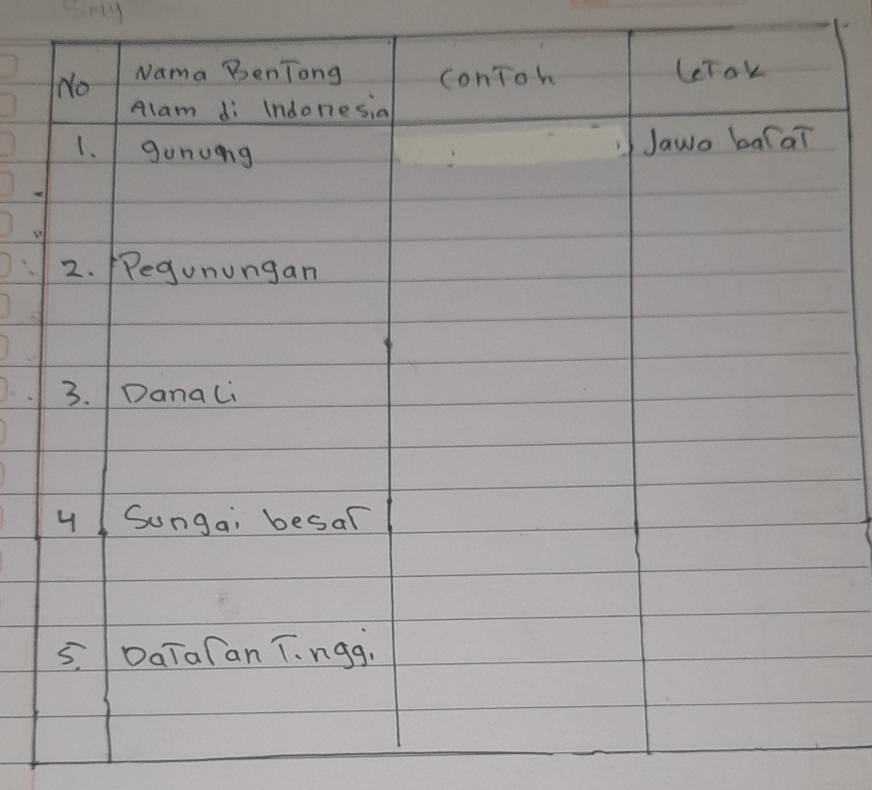 No
Nama Bentang
Alam di Indonesia
Contoh
Letak
1. gunung
Jawa barat
2. Pegunungan
3. Danau
4 Sungai besar
5. Dataran Tinggi